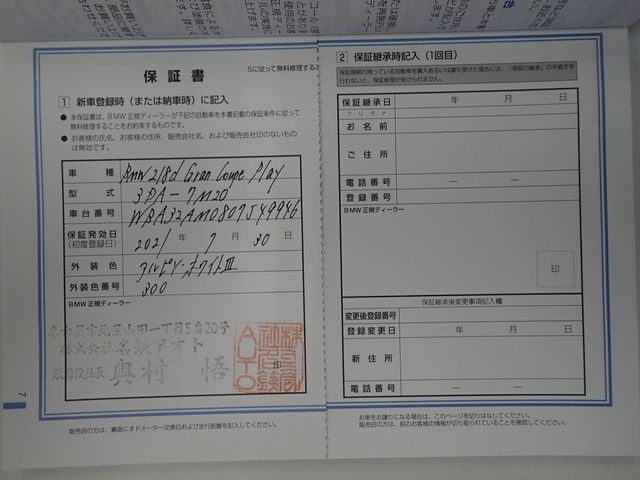 保証書
1 新車登録時（または納車時）に記入
● 本保証書は、BMW 正規ディーラーが下記の自動車を本書記載の保証条件に従って
無料修理することをお約束するものです。
● お客様の氏名、お客様の住所、販売会社名、および販売会社印のないもの
は無効です。
車種 BMW 218d Gran Coupe Play
型式 3DA-7M20
車台番号 WBA32AM0807J49946
保証発効日
(初度登録日) 2021 年 7 月 30 日
外装色 アルピン・ホワイトⅢ
外装色番号 300
BMW 正規ディーラー
名古屋市北区山田一丁目5番20号
株式会社名鉄アオト
取締役社長 奥村 悟
印
販売店の方は、裏面にオドメーター交換日および走行距離を記入してください。
7
らに従って無料修理する
2 保証継承時記入（1回目）
保証期間の残っている自動車を購入あるいは譲り受けた場合には、「保証の継承」の手続きを
行わないと、保証修理が受けられません。
保証継承日 年 月 日
フリガナ
お名前
ご住所
電話番号 ― ―
登録番号
BMW 正規ディーラー
印
保証継承後変更事項記入欄
変更後登録番号
登録変更日 年 月 日
新住所
電話番号 ― ―
お車をお譲りになる場合は、このページを切りはなしてください。
販売店の方は、前のお客様の情報が切り取られていることを確認してください。